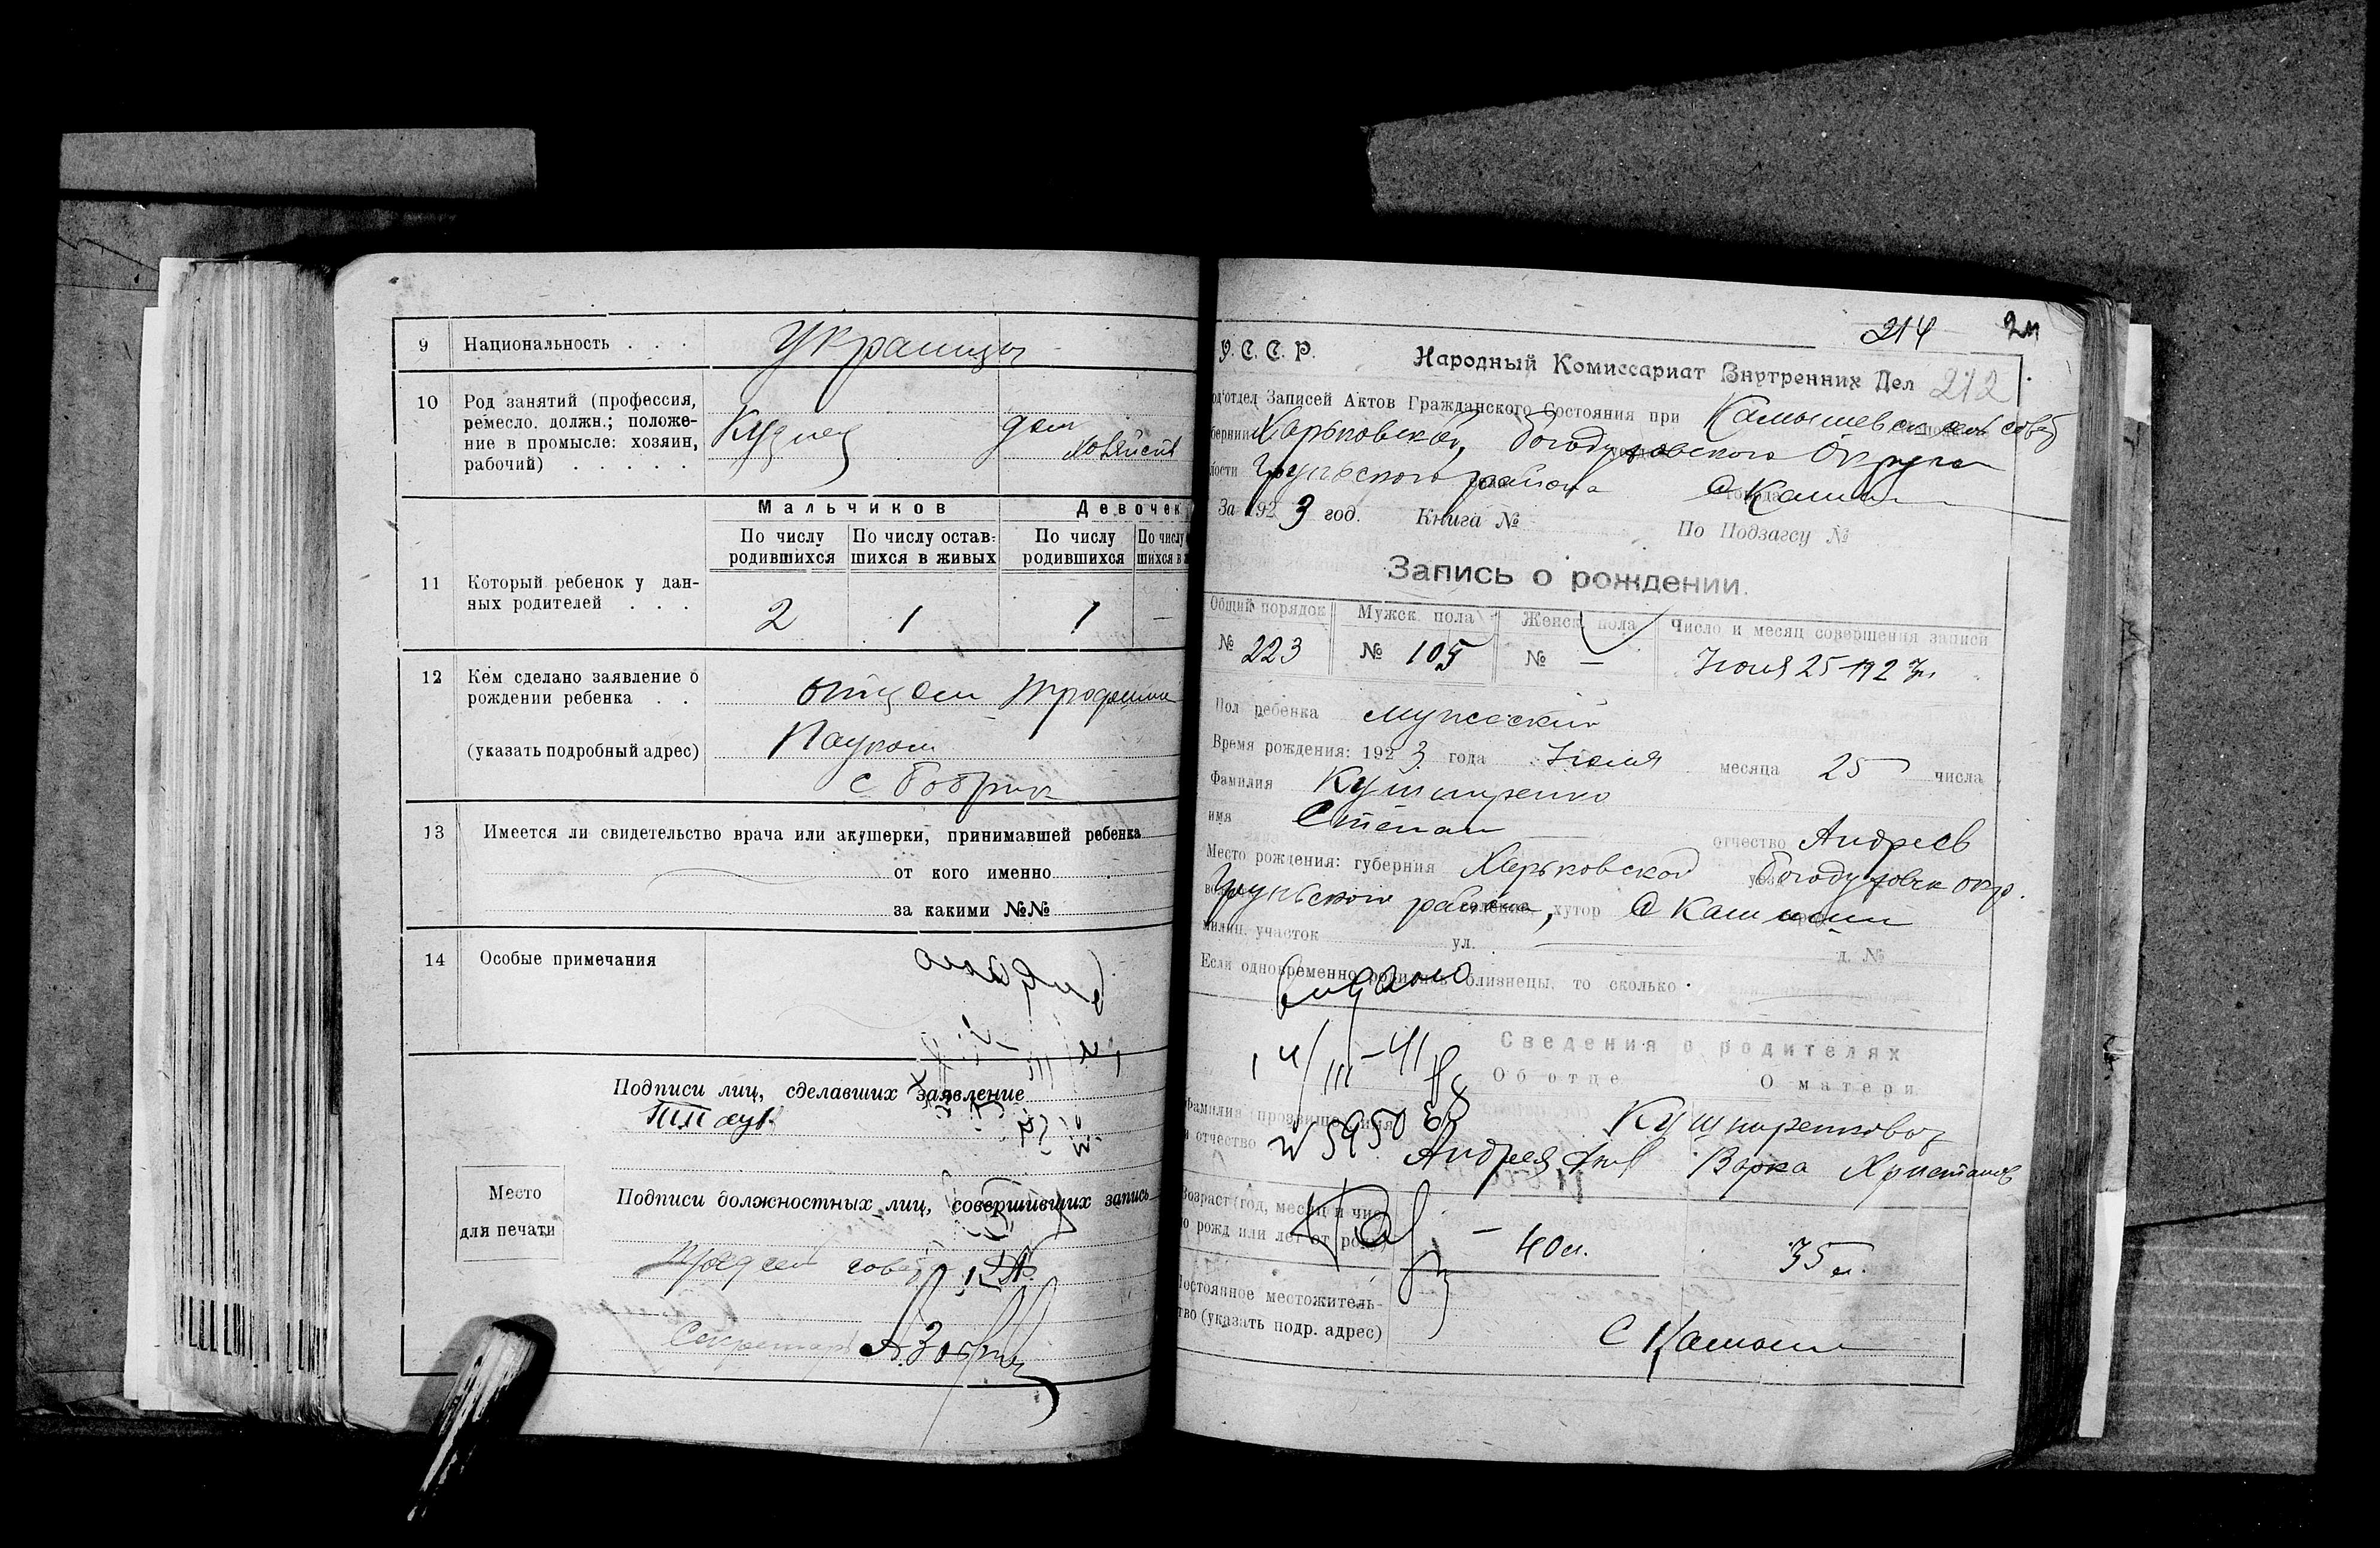 9 Национальность . . . Украинцы
10 Род занятий (профессия,
ремесло. должн.; положе-
ние в промысле: хозяин,
рабочий) . . . . .
Кузнец дом
хозяйств
Мальчиков Девочек
По числу родившихся По числу остав-шихся в живых По числу родившихся По числу
11 Который ребенок у дан-
ных родителей . . .
2 1 1 —
12 Кем сделано заявление о
рождении ребенка . .
отцом Трофимом
(указать подробный адрес) Пауком
с Бобрик
13 Имеется ли свидетельство врача или акушерки, принимавшей ребенка
от кого именно
за какими №№
14 Особые примечания
Подписи лиц, сделавших заявление
Место
для печати
Подписи должностных лиц, совершивших запись
совета
Секретарь
214
212
У. С. С. Р. Народный Комиссариат Внутренних Дел
под'отдел Записей Актов Гражданского Состояния при Камышевск сель совет
Харьковской, Богодуховского Округа
Грунского района
За 1923 год. Книга № По Подзагсу №
Запись о рождении.
Общий порядок Мужск. пола Женск. пола Число и месяц совершения записи
№ 223 № 105 № — Июля 25 192
Пол ребенка мужеский
Время рождения: 1923 года Июля месяца 25 числа
Фамилия Кушниренко
имя Степан отчество Андреев
Место рождения: губерния Харьковской Богодуховск окр.
Грунского района, хутор
милиц. участок ул. д. №
Если одновременно родились близнецы, то сколько
Выдано
14/III–41
№ 5950
Сведения о родителях
Об отце О матери
Фамилия (прозвище), имя
и отчество
Кушниренкова
Андрей Варка
Возраст (год, месяц и чис-
ло рожд или лет от роду)
— 40 л. 35 л.
Постоянное местожитель-
ство (указать подр. адрес)